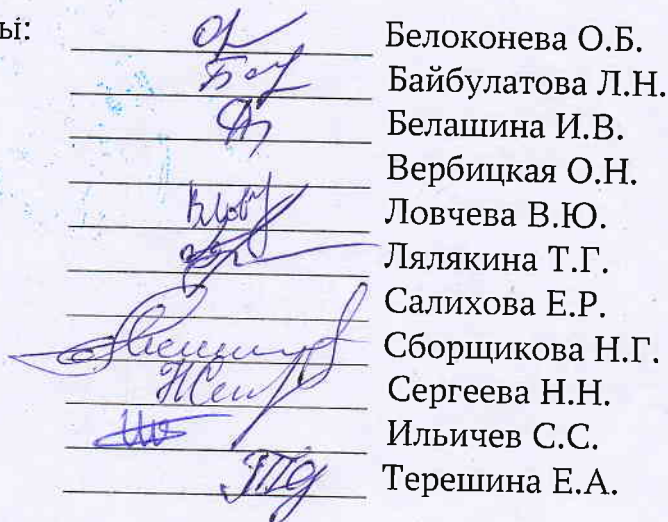 ы: Белоконева О.Б.
Байбулатова Л.Н.
Белашина И.В.
Вербицкая О.Н.
Ловчева В.Ю.
Лялякина Т.Г.
Салихова Е.Р.
Сборщикова Н.Г.
Сергеева Н.Н.
Ильичев С.С.
Терешина Е.А.